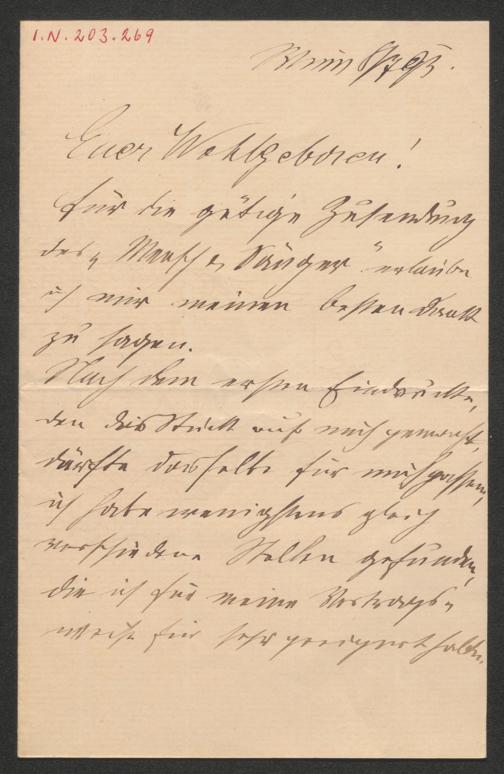 I.N. 203.269
Wien 8/7 93.
Euer Wohlgeboren!
Für die gütige Zusendung
des „Mensch & Sänger" erlaube
ich mir meinen besten Dank
zu sagen.
Nach dem ersten Eindrucke,
den das Stück auf mich gemacht,
dürfte dasselbe für mich passen,
ich habe wenigstens gleich
verschiedene Stellen gefunden,
die ich für meine Vortrags-
weise für sehr geeignet halte.